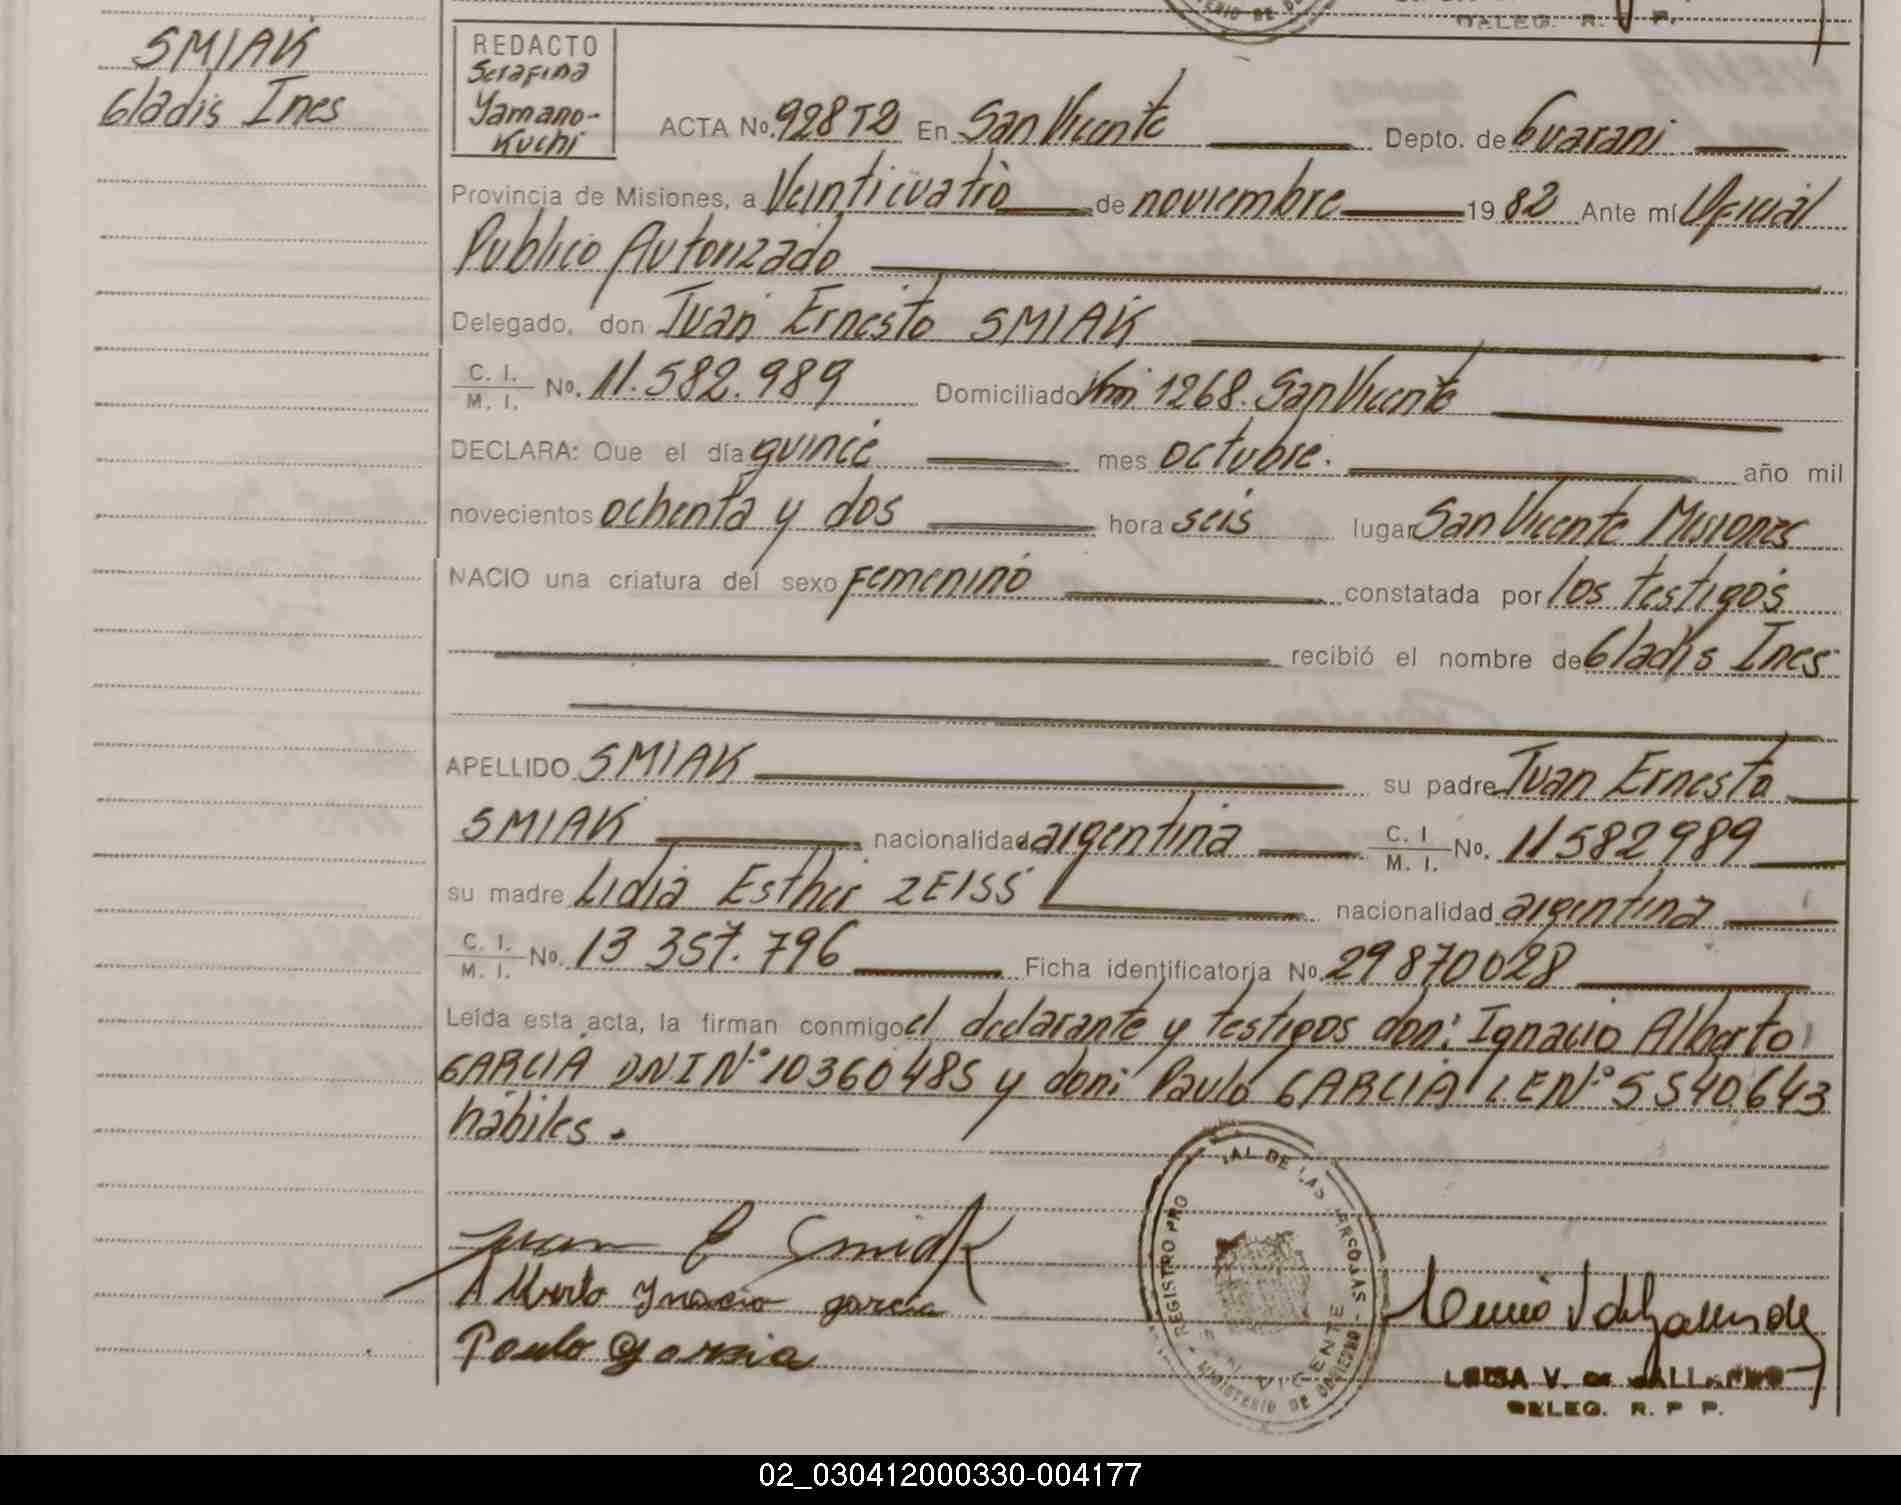 DELEG. R. P.
SMIAK
Gladis Ines
REDACTO
Serafina
Yamano-
Kuchi
ACTA No. 928 T2 En San Vicente Depto. de Guarani
Provincia de Misiones, a Veinticuatro de noviembre 1982 Ante mí Oficial
Publico Autorizado
Delegado, don Juan Ernesto SMIAK
C. I. / M. I. No. 11.582.989 Domiciliado Km 1268. San Vicente
DECLARA: Que el día quince mes octubre. año mil
novecientos ochenta y dos hora seis lugar San Vicente Misiones
NACIO una criatura del sexo femenino constatada por los testigos
recibió el nombre de Gladis Ines
APELLIDO SMIAK su padre Juan Ernesto
SMIAK nacionalidad argentina C. I / M. I. No. 11582989
su madre Lidia Esther ZEISS nacionalidad argentina
C. I. / M. I. No. 13 357.796 Ficha identificatoria No. 29870028
Leída esta acta, la firman conmigo el declarante y testigos don: Ignacio Alberto
GARCIA DNI Nº 10360485 y don: Paulo GARCIA L.E Nº 5540643
hábiles.
Juan E Smiak
Alberto Ynacio garcia
Paulo Garcia
REGISTRO PRO AL DE LAS
MINISTERIO DE GOBIERNO
VICENTE
LUISA V. DE GALLARDO
DELEG. R. P P.
02_030412000330-004177